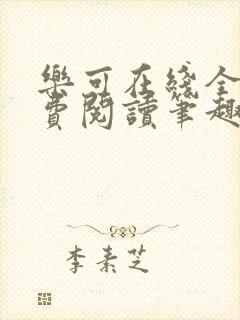 樂可在綫全
費閱讀筆趣
李素芝